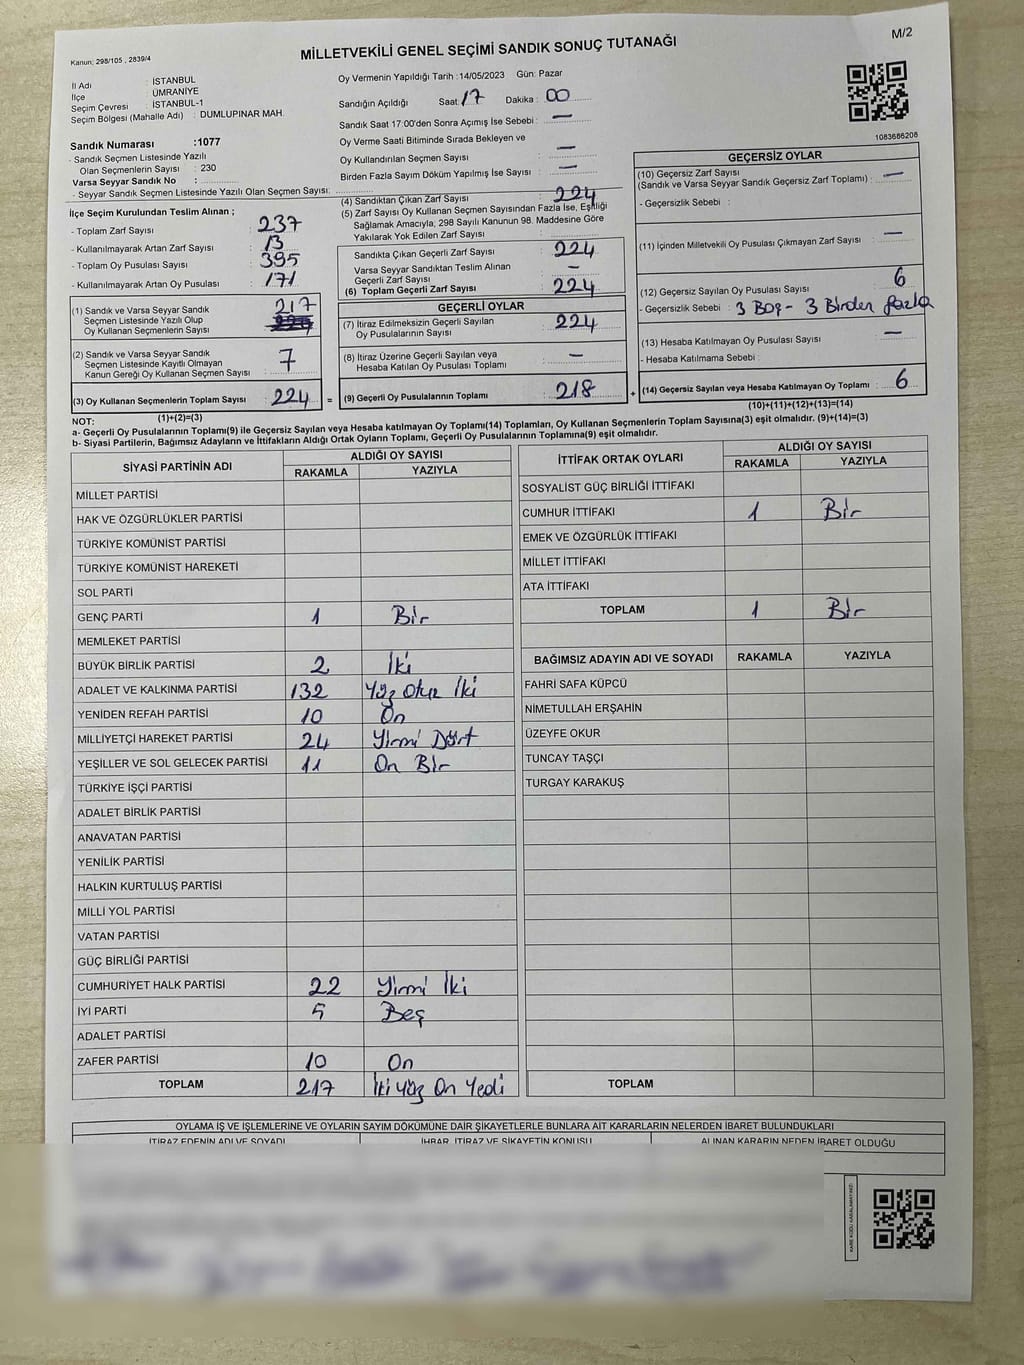 M/2
Kanun; 298/105 , 2839/4
MİLLETVEKİLİ GENEL SEÇİMİ SANDIK SONUÇ TUTANAĞI
İl Adı : İSTANBUL
İlçe : ÜMRANİYE
Seçim Çevresi : İSTANBUL-1
Seçim Bölgesi (Mahalle Adı) : DUMLUPINAR MAH.
Sandık Numarası :1077
- Sandık Seçmen Listesinde Yazılı
Olan Seçmenlerin Sayısı : 230
Varsa Seyyar Sandık No :
- Seyyar Sandık Seçmen Listesinde Yazılı Olan Seçmen Sayısı:
Oy Vermenin Yapıldığı Tarih :14/05/2023 Gün: Pazar
Sandığın Açıldığı Saat: 17 Dakika : 00
Sandık Saat 17:00'den Sonra Açımış İse Sebebi : —
Oy Verme Saati Bitiminde Sırada Bekleyen ve
Oy Kullandırılan Seçmen Sayısı : —
Birden Fazla Sayım Döküm Yapılmış İse Sayısı : —
1083686208
İlçe Seçim Kurulundan Teslim Alınan ;
- Toplam Zarf Sayısı : 237
- Kullanılmayarak Artan Zarf Sayısı : 13
- Toplam Oy Pusulası Sayısı : 395
- Kullanılmayarak Artan Oy Pusulası : 171
(1) Sandık ve Varsa Seyyar Sandık
Seçmen Listesinde Yazılı Olup
Oy Kullanan Seçmenlerin Sayısı : 217
(2) Sandık ve Varsa Seyyar Sandık
Seçmen Listesinde Kayıtlı Olmayan
Kanun Gereği Oy Kullanan Seçmen Sayısı : 7
(3) Oy Kullanan Seçmenlerin Toplam Sayısı : 224 =
(1)+(2)=(3)
(4) Sandıktan Çıkan Zarf Sayısı : 224
(5) Zarf Sayısı Oy Kullanan Seçmen Sayısından Fazla İse, Eşitliği
Sağlamak Amacıyla; 298 Sayılı Kanunun 98. Maddesine Göre
Yakılarak Yok Edilen Zarf Sayısı :
Sandıkta Çıkan Geçerli Zarf Sayısı : 224
Varsa Seyyar Sandıktan Teslim Alınan
Geçerli Zarf Sayısı : —
(6) Toplam Geçerli Zarf Sayısı : 224
GEÇERLİ OYLAR
(7) İtiraz Edilmeksizin Geçerli Sayılan
Oy Pusulalarının Sayısı : 224
(8) İtiraz Üzerine Geçerli Sayılan veya
Hesaba Katılan Oy Pusulası Toplamı : —
(9) Geçerli Oy Pusulalarının Toplamı : 218 +
GEÇERSİZ OYLAR
(10) Geçersiz Zarf Sayısı
(Sandık ve Varsa Seyyar Sandık Geçersiz Zarf Toplamı) : —
- Geçersizlik Sebebi :
(11) İçinden Milletvekili Oy Pusulası Çıkmayan Zarf Sayısı : —
(12) Geçersiz Sayılan Oy Pusulası Sayısı : 6
- Geçersizlik Sebebi : 3 Boş - 3 Birden fazla
(13) Hesaba Katılmayan Oy Pusulası Sayısı : —
- Hesaba Katılmama Sebebi :
(14) Geçersiz Sayılan veya Hesaba Katılmayan Oy Toplamı : 6
(10)+(11)+(12)+(13)=(14)
NOT:
a- Geçerli Oy Pusulalarının Toplamı(9) ile Geçersiz Sayılan veya Hesaba katılmayan Oy Toplamı(14) Toplamları, Oy Kullanan Seçmenlerin Toplam Sayısına(3) eşit olmalıdır. (9)+(14)=(3)
b- Siyasi Partilerin, Bağımsız Adayların ve İttifakların Aldığı Ortak Oyların Toplamı, Geçerli Oy Pusulalarının Toplamına(9) eşit olmalıdır.
SİYASİ PARTİNİN ADI ALDIĞI OY SAYISI
RAKAMLA YAZIYLA
MİLLET PARTİSİ
HAK VE ÖZGÜRLÜKLER PARTİSİ
TÜRKİYE KOMÜNİST PARTİSİ
TÜRKİYE KOMÜNİST HAREKETİ
SOL PARTİ
GENÇ PARTİ 1 Bir
MEMLEKET PARTİSİ
BÜYÜK BİRLİK PARTİSİ 2 İki
ADALET VE KALKINMA PARTİSİ 132 Yüz Otuz İki
YENİDEN REFAH PARTİSİ 10 On
MİLLİYETÇİ HAREKET PARTİSİ 24 Yirmi Dört
YEŞİLLER VE SOL GELECEK PARTİSİ 11 On Bir
TÜRKİYE İŞÇİ PARTİSİ
ADALET BİRLİK PARTİSİ
ANAVATAN PARTİSİ
YENİLİK PARTİSİ
HALKIN KURTULUŞ PARTİSİ
MİLLİ YOL PARTİSİ
VATAN PARTİSİ
GÜÇ BİRLİĞİ PARTİSİ
CUMHURİYET HALK PARTİSİ 22 Yirmi İki
İYİ PARTİ 5 Beş
ADALET PARTİSİ
ZAFER PARTİSİ 10 On
TOPLAM 217 İki Yüz On Yedi
İTTİFAK ORTAK OYLARI ALDIĞI OY SAYISI
RAKAMLA YAZIYLA
SOSYALİST GÜÇ BİRLİĞİ İTTİFAKI
CUMHUR İTTİFAKI 1 Bir
EMEK VE ÖZGÜRLÜK İTTİFAKI
MİLLET İTTİFAKI
ATA İTTİFAKI
TOPLAM 1 Bir
BAĞIMSIZ ADAYIN ADI VE SOYADI RAKAMLA YAZIYLA
FAHRİ SAFA KÜPCÜ
NİMETULLAH ERŞAHİN
ÜZEYFE OKUR
TUNCAY TAŞÇI
TURGAY KARAKUŞ
TOPLAM
OYLAMA İŞ VE İŞLEMLERİNE VE OYLARIN SAYIM DÖKÜMÜNE DAİR ŞİKAYETLERLE BUNLARA AİT KARARLARIN NELERDEN İBARET BULUNDUKLARI
İTİRAZ EDENİN ADI VE SOYADI İHBAR, İTİRAZ VE ŞİKAYETİN KONUSU ALINAN KARARIN NEDEN İBARET OLDUĞU